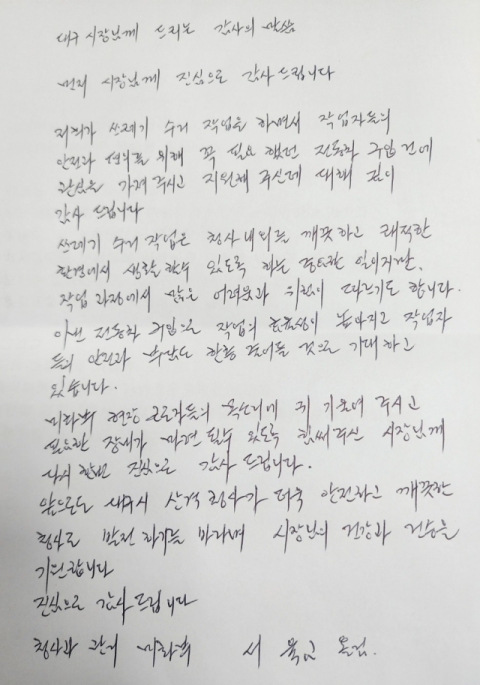 대구 시장님께 드리는 감사의 말씀
먼저 시장님께 진심으로 감사 드립니다
저희가 쓰레기 수거 작업을 하면서 작업자들의
안전과 편의를 위해 꼭 필요 했던 전동차 구입 건에
관심을 가져 주시고 지원해 주신데 대해 깊이
감사 드립니다
쓰레기 수거 작업은 청사 내외를 깨끗하고 쾌적한
환경에서 생활 할수 있도록 하는 중요한 일이지만,
작업 과정에서 많은 어려움과 위험이 따르기도 합니다.
이번 전동차 구입으로 작업의 효율성이 높아지고 작업자
들의 안전과 부담도 한층 줄어들 것으로 기대하고
있습니다.
미화원 현장 근로자들의 목소리에 귀 기울여 주시고
필요한 장비가 마련 될수 있도록 힘써주신 시장님께
다시 한번 진심으로 감사 드립니다.
앞으로도 대구시 산격청사가 더욱 안전하고 깨끗한
청사로 발전 하기를 바라며 시장님의 건강과 건승을
기원합니다
진심으로 감사 드립니다
청사과 관리 미화원 서 올림.